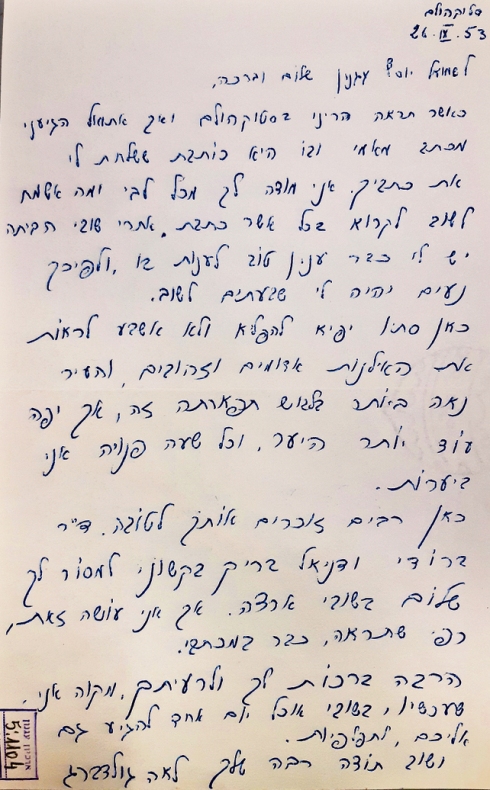 סטוקהולם
26.IX.53
לשמואל יוסף עגנון שלום וברכה,
כאשר תראה הריני בסטוקהולם ואך אתמול הגיעני
מכתב מאמי ובו היא כותבת ששלחת לי
את כתביך. אני מודה לך מכל לבי ומה אשמח
לשוב לקרוא בכל אשר כתבת. אחרי שובי הביתה
יש לי כבר ענין טוב לענות בו, ולפיכך
נעים יהיה לי שבעתים לשוב.
כאן סתו יפיא להפליא ולא אשבע לראות
את האילנות אדומים וזהובים, והעיר
נאה ביותר בלבוש תפארתה זה, אך יפה
עוד יותר היער, וכל שעה פנויה אני
ביערות.
כאן רבים זוכרים אותך לטובה. ד״ר
ברודי ודניאל בריק בקשוני למסור לך
שלום בשובי ארצה. אך אני עושה זאת,
כפי שתראה, כבר במכתבי.
הרבה ברכות לך ולרעיתך. מקוה אני,
שעכשיו, בשובי אוכל יום אחד להגיע גם
אליכם, לתלפיות.
ושוב תודה רבה שלך לאה גולדברג
5:1104